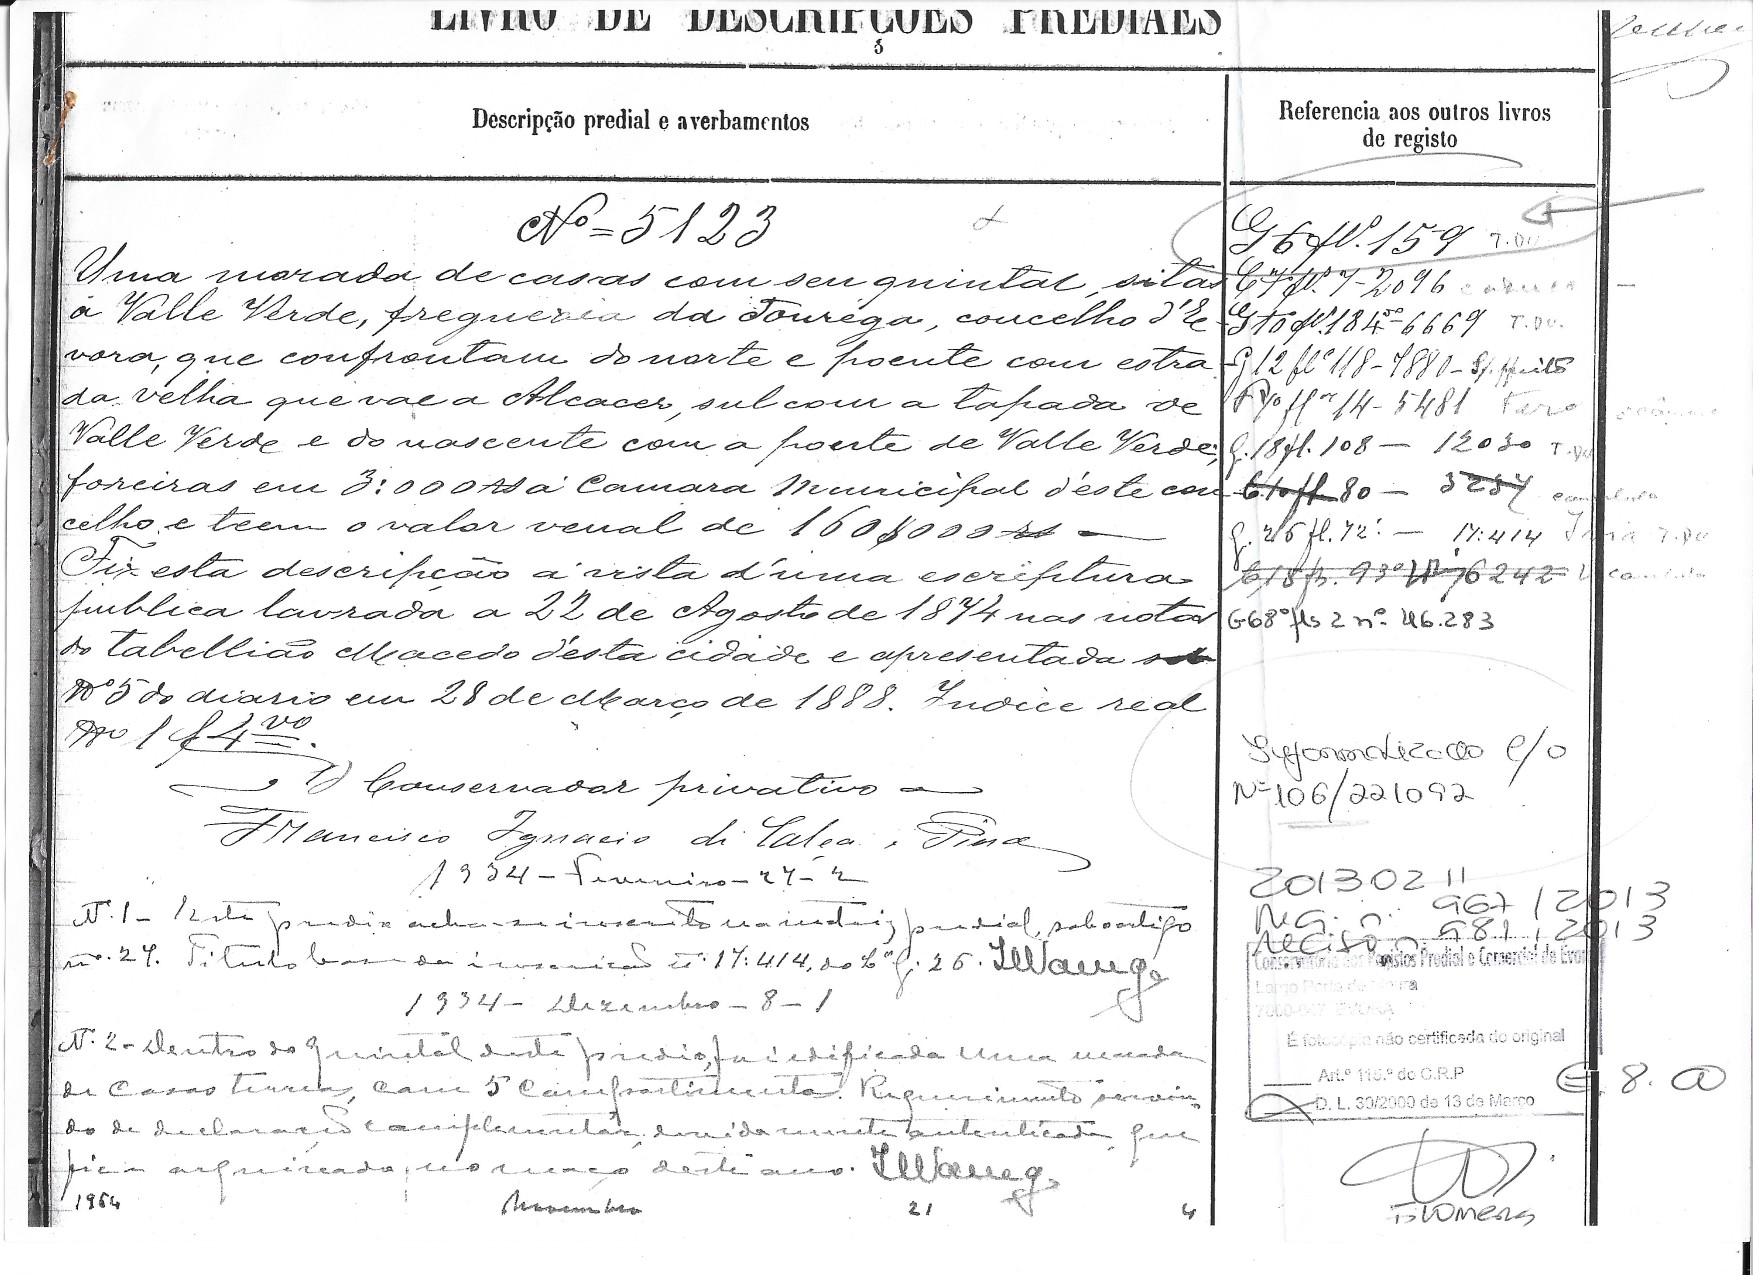 LIVRO DE DESCRIPÇÕES PREDIAES
Descripção predial e averbamentos
Referencia aos outros livros
de registo
Nº = 5123
Uma morada de casas com seu quintal, sitas
á Valle Verde, freguezia da Tourega, concelho d'E-
vora, que confrontam do norte e poente com estra
da velha que vae a Alcacer, sul com a tapada de
Valle Verde e do nascente com a ponte de Valle Verde,
foreiras em 3:000 rs á Camara Municipal d'éste con
celho, e teem o valor venal de 160$000 rs —
Fiz esta descripção á vista d'uma escriptura
publica lavrada a 22 de Agosto de 1874 nas notas
do tabellião Macedo d'ésta cidade e apresentada sob
Nº 5 do diario em 28 de Março de 1888. Indice real
Nº 1 f 4 vº.
O Conservador privativo
Francisco Ignacio de Calça e Pina
1934 - Fevereiro - 27 - 2
N.º 1 - Este predio acha-se inscrito na matriz predial, sob o artigo
nº. 27. Titulo base da inscrição nº 17:414, do Lº G. 26.
1934 - Dezembro - 8 - 1
N.º 2 - Dentro do quintal deste predio, foi edificada uma morada
de casas terreas, com 5 compartimentos. Requerimento servin
do de declaração complementar, devidamente autenticada, que
fica arquivado no maço deste ano.
1964 Novembro 21 4
G 6 flº. 159 T.DU
C 7 flº. 7 - 2096
G 10 flº. 184 vº - 6669 T.DU.
G 12 flº 118 - 7880
14 - 5481 Foro
G. 18 fl. 108 — 12030 T.DU
C 10 fl. 80 — 5237
G. 26 fl. 72 — 17:414 T.DU
C 18 fls. 93 vº Nº 6242
G 68º fls 2 nº. 46.283
Informatizado c/o
Nº 106/221092
20130211
REQ. n. 967/2013
RECIBO n 981/2013
Conservatória dos Registos Predial e Comercial de Évora
Largo Porta de Moura
7000-647 ÉVORA
É fotocópia não certificada do original
Art.º 116.º do C.R.P
D. L. 30/2000 de 13 de Março
€. 8.00